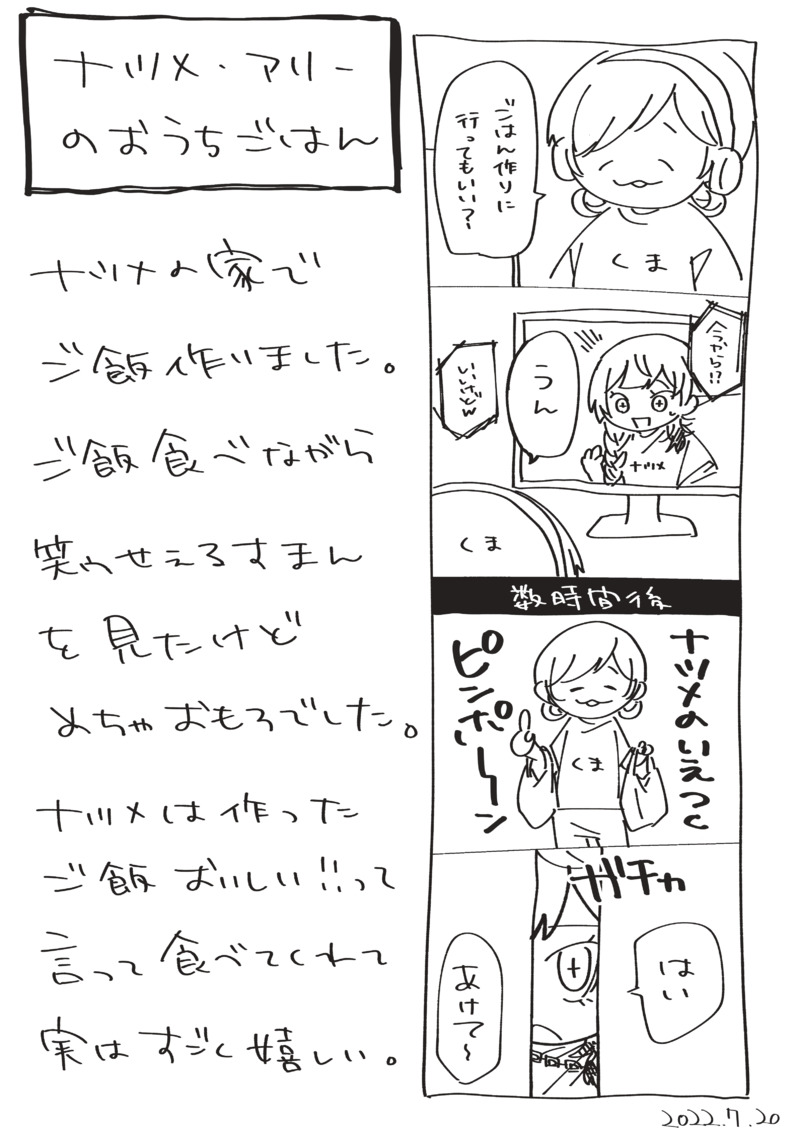 ナツメ・アリー
のおうちごはん
ナツメの家で
ご飯作りました。
ご飯食べながら
笑ゥせぇるすまん
を見たけど
めちゃおもろでした。
ナツメは作った
ご飯おいしい!!って
言って食べてくれて
実はすごく嬉しい。
ごはん作りに
行ってもいい?
くま
今から!?
うん
いいけどw
ナツメ
くま
数時間後
ナツメのいえつく
ピンポーン
くま
ガチャ
はい
あけて〜
2022.7.20